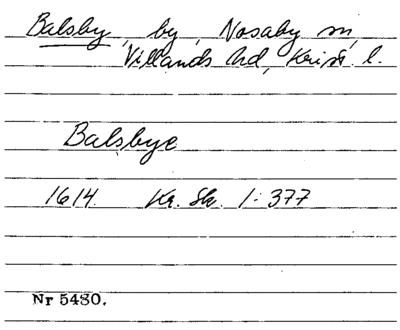 Balsby, by, Nosaby sn,
Villands hd, Krist. l.
Balsbye
1614 Kr. Sk. 1:377
Nr 5480.